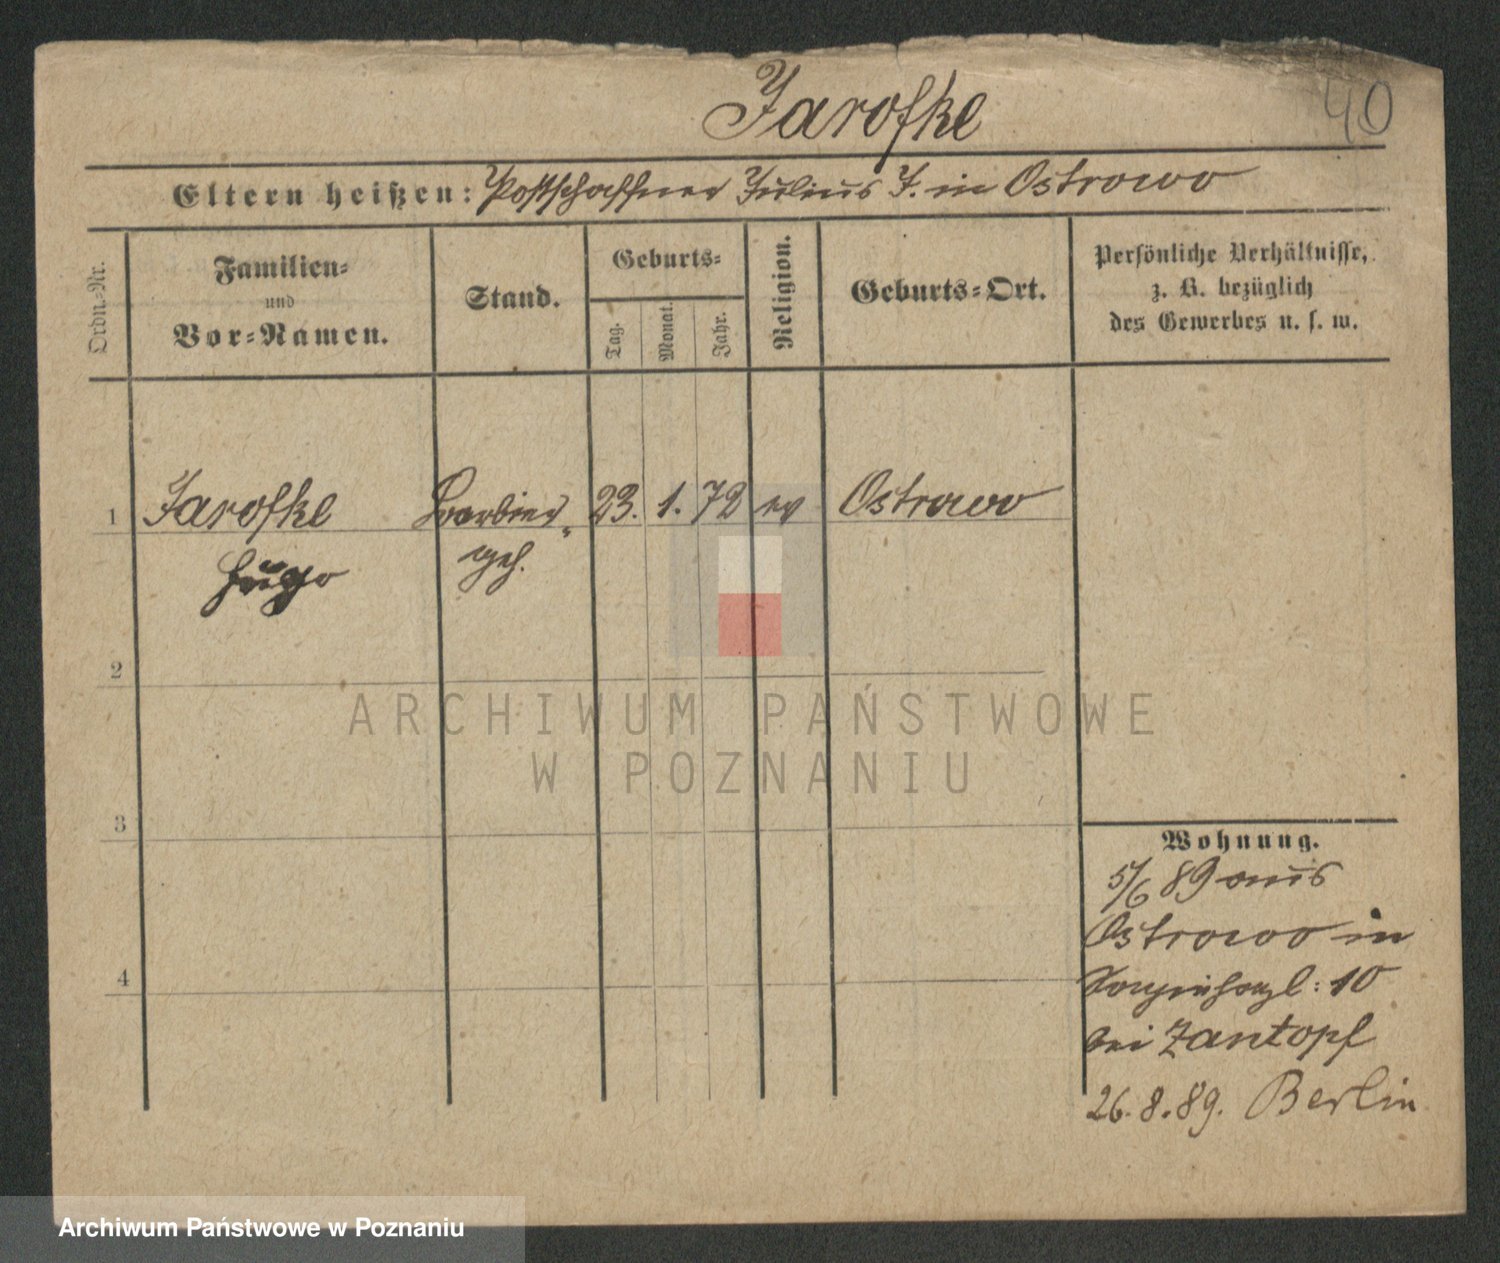 Jaroſke
40
Eltern heißen: Postschaffner Julius J. in Ostrowo
Ordn.-Nr.
Familien-
und
Vor-Namen.
Stand.
Geburts-
Tag.
Monat.
Jahr.
Religion.
Geburts-Ort.
Persönliche Verhältnisse,
z. B. bezüglich
des Gewerbes u. s. w.
1 Jaroſke Barbier- 23. 1. 72 ev Ostrowo
Hugo geh.
2
3
4
Wohnung.
5/6 89 aus
Ostrowo in
10
bei Zantopf
26. 8. 89. Berlin
ARCHIWUM PAŃSTWOWE
W POZNANIU
Archiwum Państwowe w Poznaniu